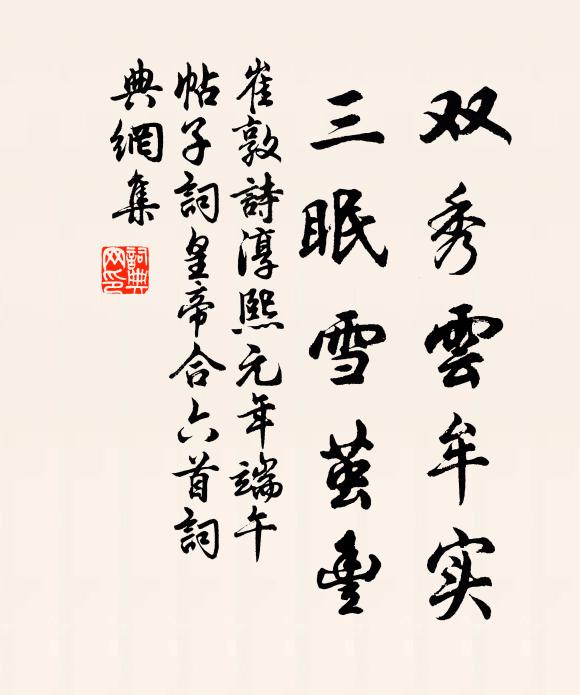 双秀雲牟实
三眠雪茧豐
崔敦詩淳熙元年端午
帖子詞皇帝合六首詞
典網集
詞典
网印